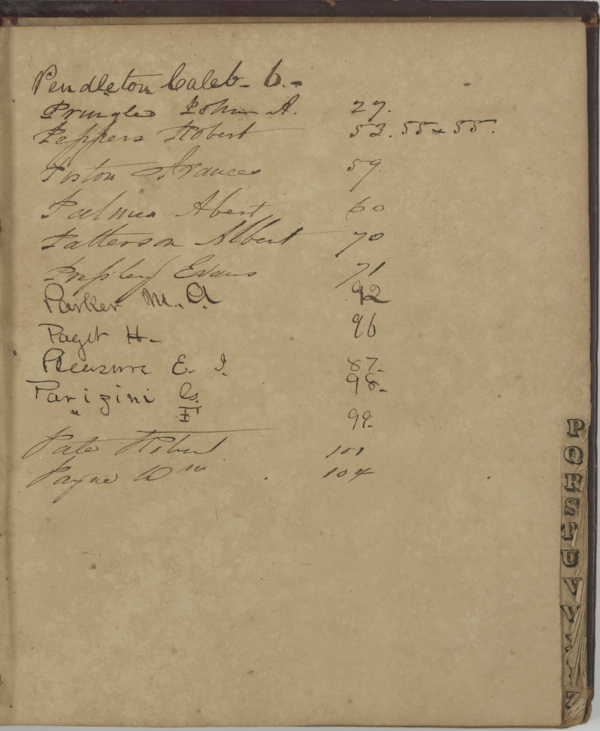 Pendleton Caleb - 6. -
Pringle John A. 27.
Peppers Robert 53. 55 & 55.
Piston Frances 59.
Palmer Abert 60
Patterson Albert 70
Pressley Evans 71
Parker M. A 92
Paget H- 96
Pleasure E. I. 87-
Parizini G. 98-
" F 99-
Pate Robert 101
Payne Wm 104
P
Q
R
S
T
U
V